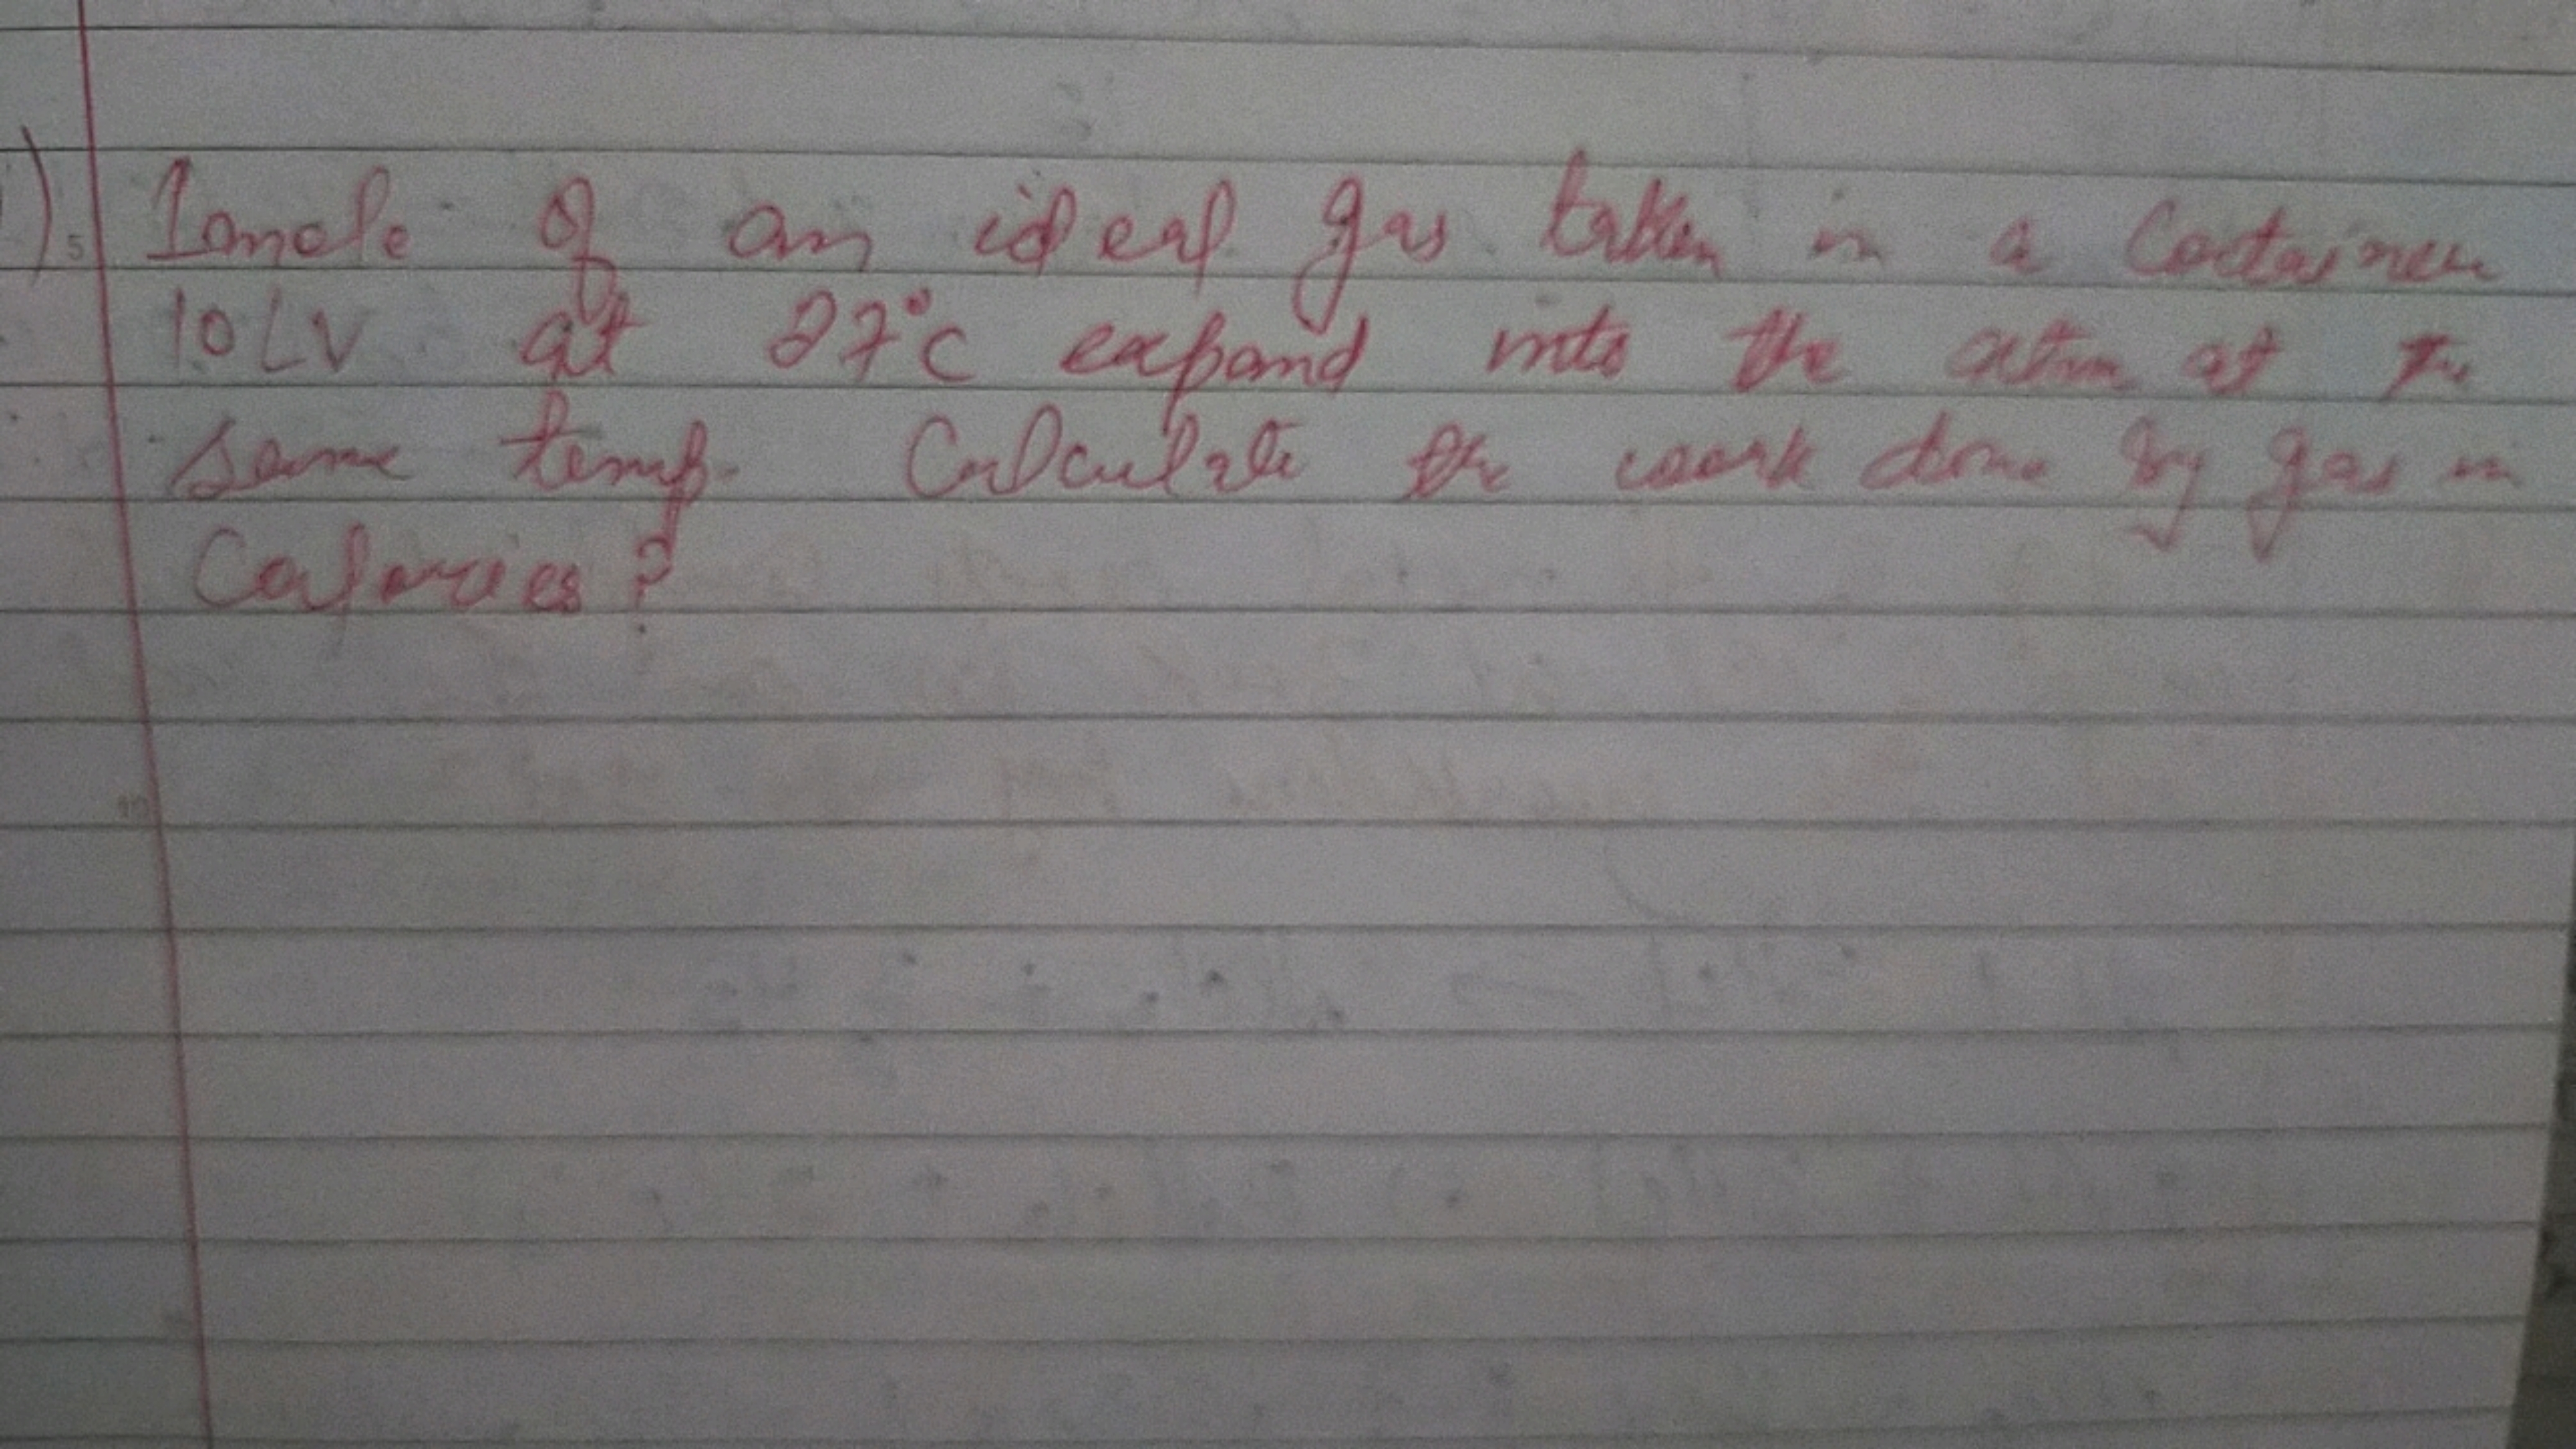 1). 1 mole of an ideal gas taken in a Container
10LV at 27°C expand into the atm at the
same temp. Calculate the work done by gas in
Calories?